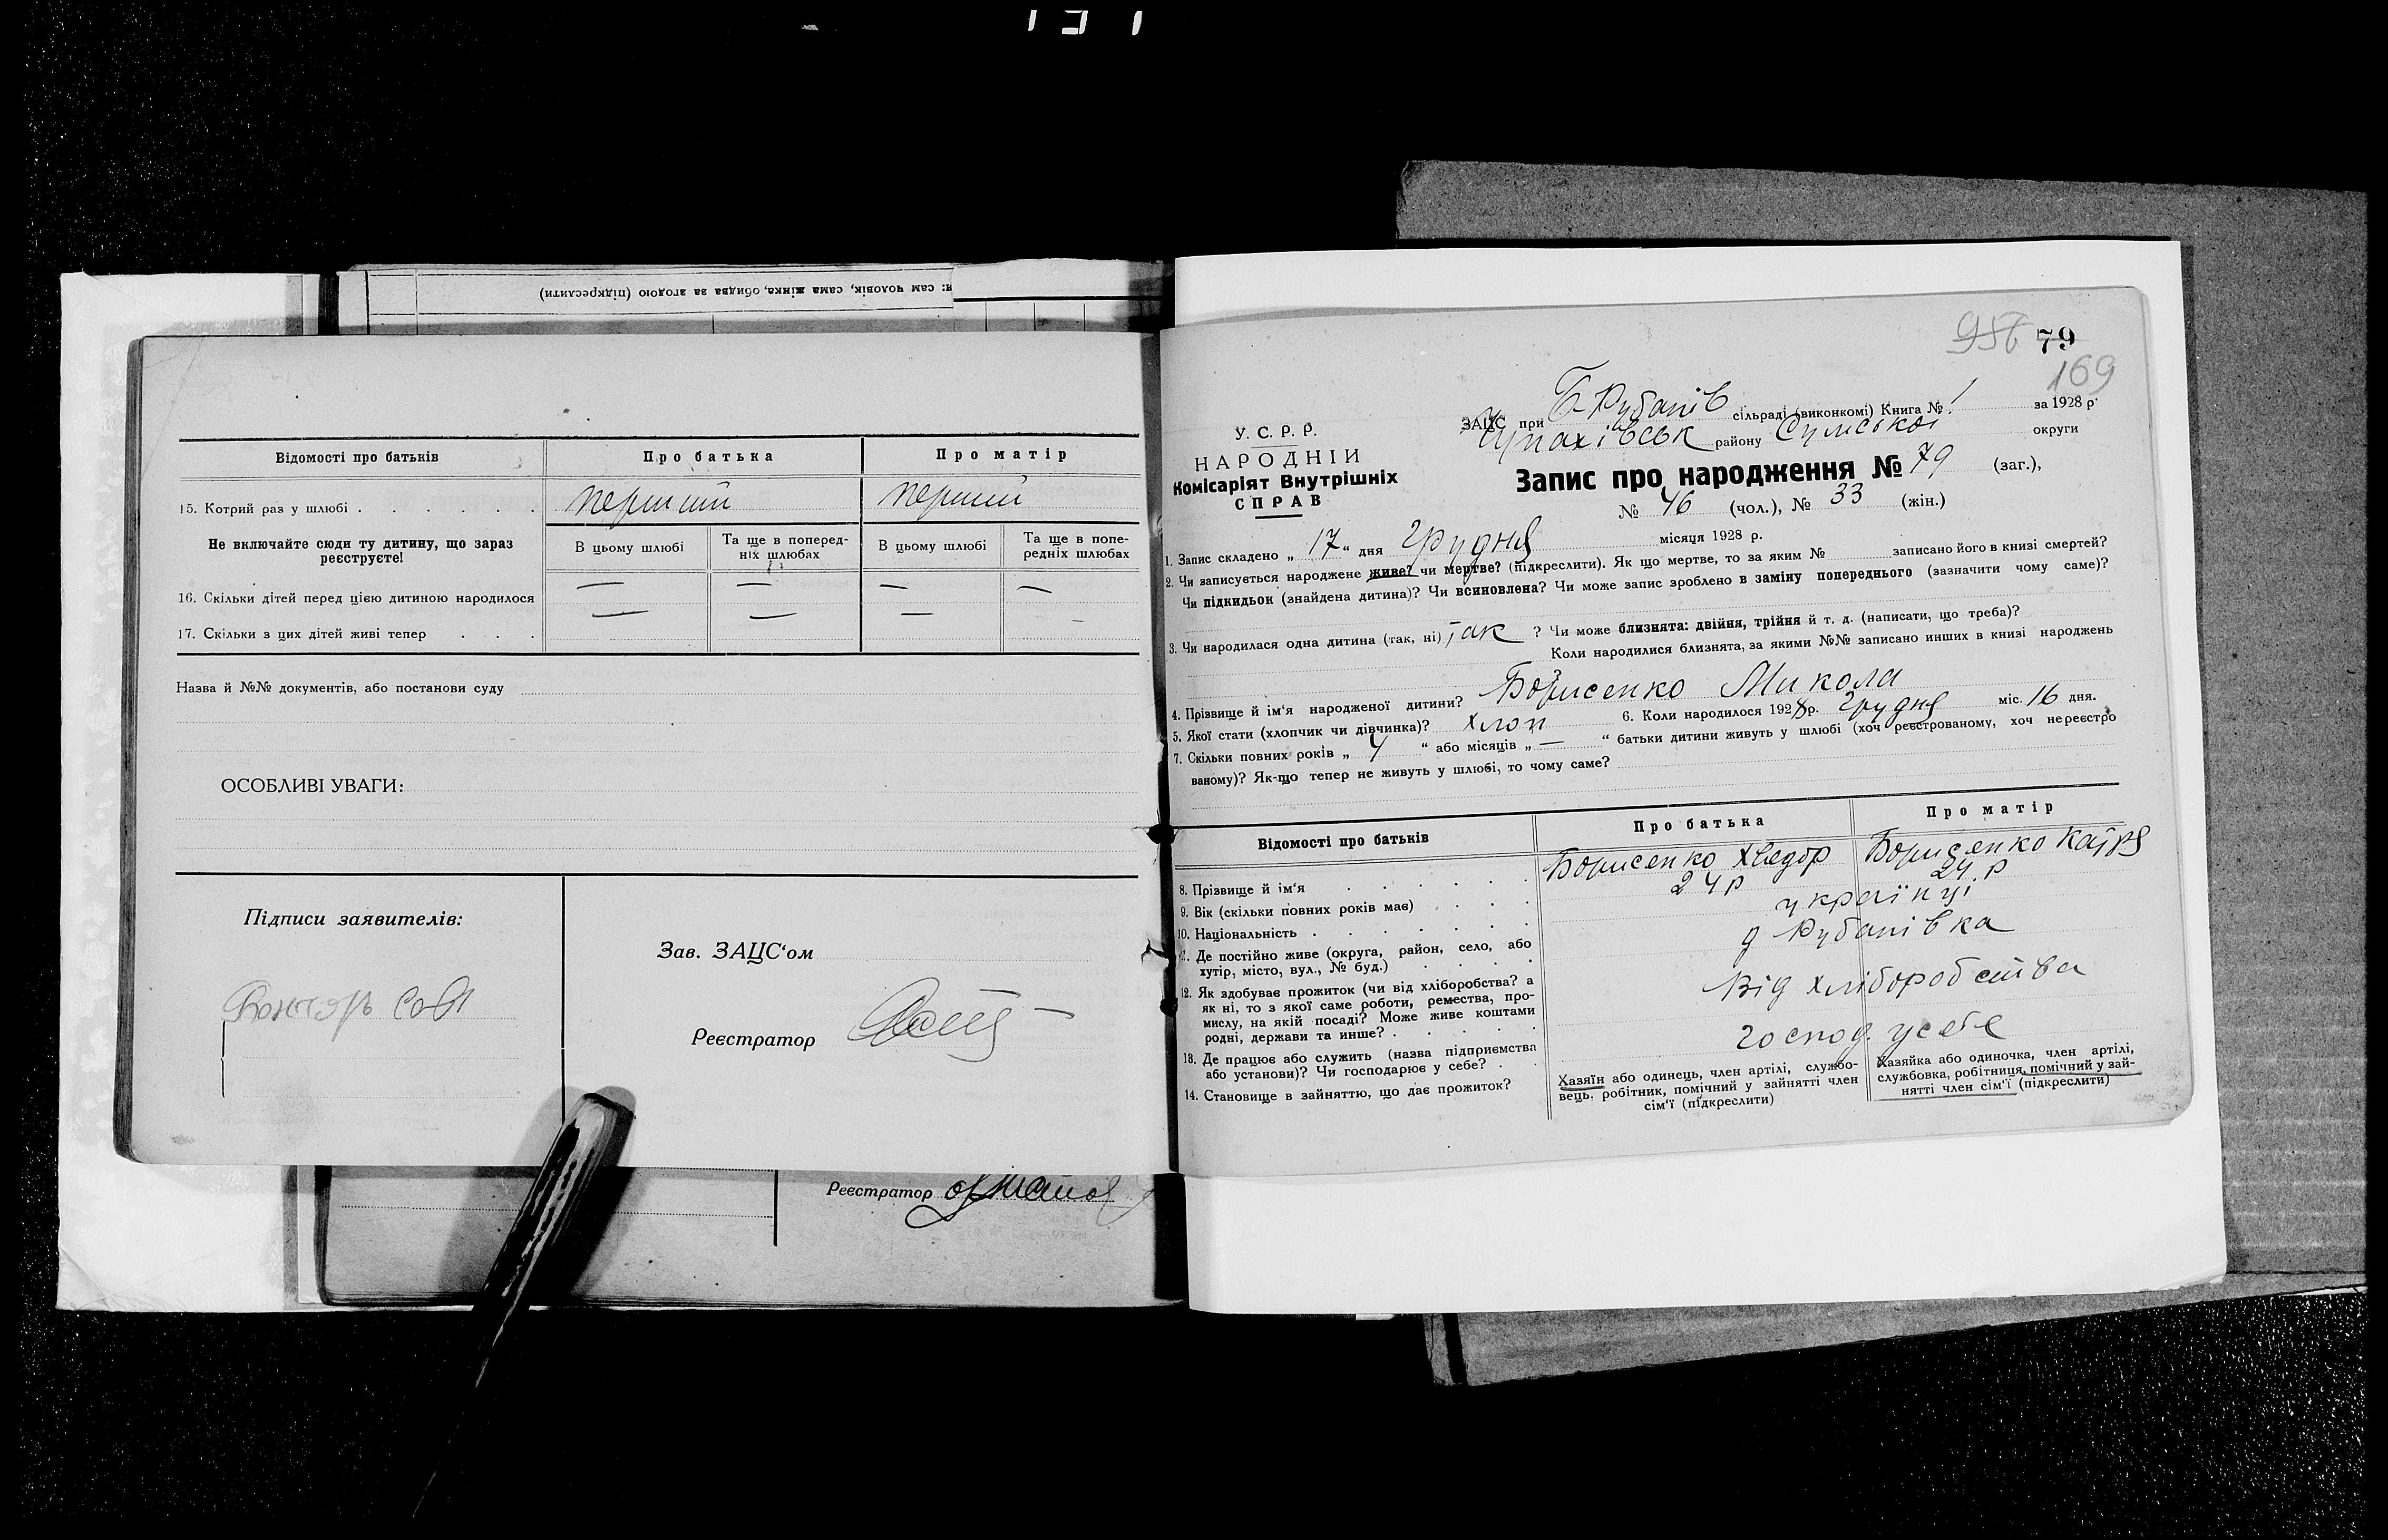 я: сам чоловік, сама жінка, обидва за згодою (підкреслити)
Відомості про батьків
Про батька
Про матір
15. Котрий раз у шлюбі . . . . . .
перший
перший
Не включайте сюди ту дитину, що зараз реєструєте!
В цьому шлюбі
Та ще в поперед-
ніх шлюбах
В цьому шлюбі
Та ще в попе-
редніх шлюбах
16. Скільки дітей перед цією дитиною народилося
— — — —
17. Скільки з цих дітей живі тепер . . .
— — — -
Назва й №№ документів, або постанови суду
ОСОБЛИВІ УВАГИ:
Підписи заявителів:
Зав. ЗАЦС‘ом
Реєстратор
Реєстратор
79
169
У. С. Р. Р.
НАРОДНІЙ
Комісаріят Внутрішніх
СПРАВ
ЗАЦС при Б-Рубанів сільраді (виконкомі) Книга № 1 за 1928 р.
району Сумської округи
Запис про народження № 79 (заг.),
№ 46 (чол.), № 33 (жін.)
1. Запис складено „ 17 “ дня грудня місяця 1928 р.
2. Чи записується народжене живе? чи мертве? (підкреслити). Як що мертве, то за яким № записано його в книзі смертей?
Чи підкидьок (знайдена дитина)? Чи всиновлена? Чи може запис зроблено в заміну попереднього (зазначити чому саме)?
3. Чи народилася одна дитина (так, ні) так ? Чи може близнята: двійня, трійня й т. д. (написати, що треба)?
Коли народилися близнята, за якими №№ записано инших в книзі народжень
4. Прізвище й ім‘я народженої дитини? Борисенко Микола
5. Якої стати (хлопчик чи дівчинка)? хлоп 6. Коли народилось 1928 р. грудня міс. 16 дня.
7. Скільки повних років „ 4 “ або місяців „ — “ батьки дитини живуть у шлюбі (хоч реєстрованому, хоч нереєстро
ваному)? Як-що тепер не живуть у шлюбі, то чому саме?
Відомості про батьків
Про батька
Про матір
8. Прізвище й ім‘я . . . . . .
Борисенко Хведор
Борисенко
9. Вік (скільки повних років має) . . .
24 р
24 р
10. Національність . . . . . . .
українці
11. Де постійно живе (округа, район, село, або
хутір, місто, вул., № буд.) . . . .
д Рубанівка
12. Як здобуває прожиток (чи від хліборобства? а
як ні, то з якої саме роботи, ремества, про-
мислу, на якій посаді? Може живе коштами
родні, держави та инше? . . . . .
Від хліборобства
13. Де працює або служить (назва підприємства
або установи)? Чи господарює у себе? . .
господ. усебе
14. Становище в зайняттю, що дає прожиток?
Хазяїн або одинець, член артілі, службо-
вець, робітник, помічний у зайнятті член
сім‘ї (підкреслити)
Хазяйка або одиночка, член артілі,
службовка, робітниця, помічний у зай-
нятті член сім‘ї (підкреслити)